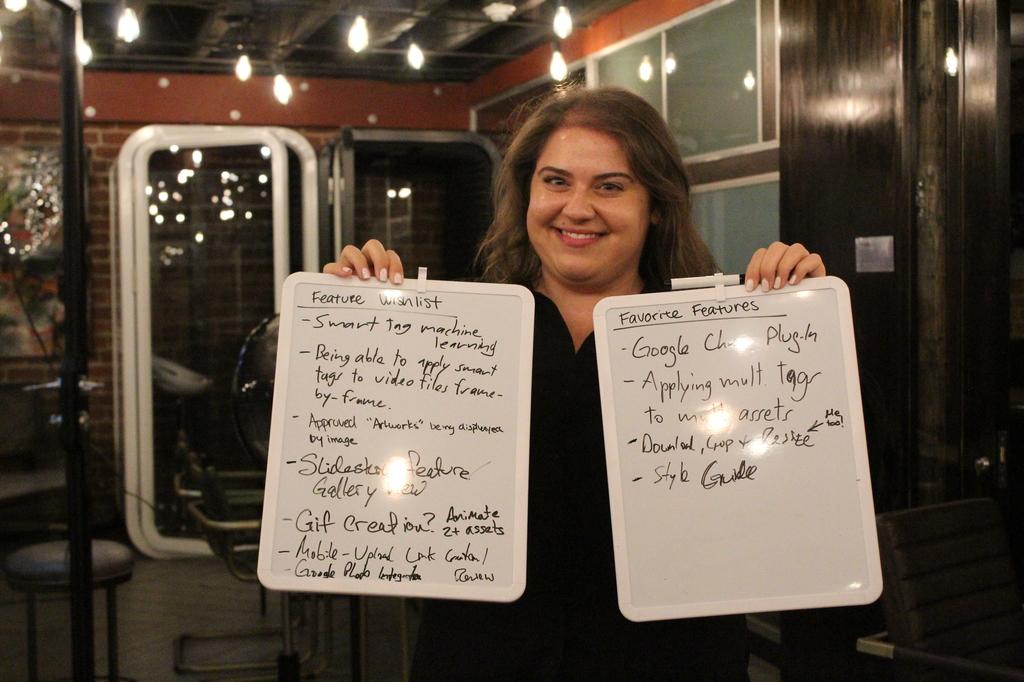 Feature Wishlist
- Smart tag machine
learning
- Being able to apply smart
tags to video files frame-
by-frame.
- Approved "Artworks" being displayed
by image
- Slideshow feature/
Gallery view
- Gif creation? Animate
2+ assets
- Mobile - Upload Link
Review
- Google Photo Integration
Favorite Features
- Google Plug-In
- Applying mult. tags
to multi assets
- Download, Crop + Resize
Me
too!
- Style Guide